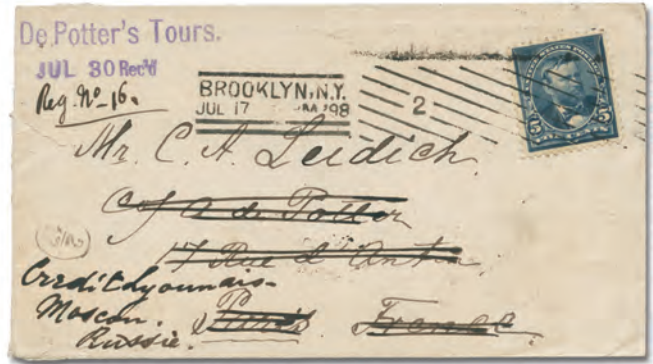 De Potter's Tours.
JUL 30 Rec'd
Reg. Nº 16.
BROOKLYN, N.Y.
JUL 17 M '98
2
5 5
Mr. C. A. Leidich
A de Potter
17 Rue d'Antin
Paris France
Credit Lyonnais-
Moscou.
Russie.